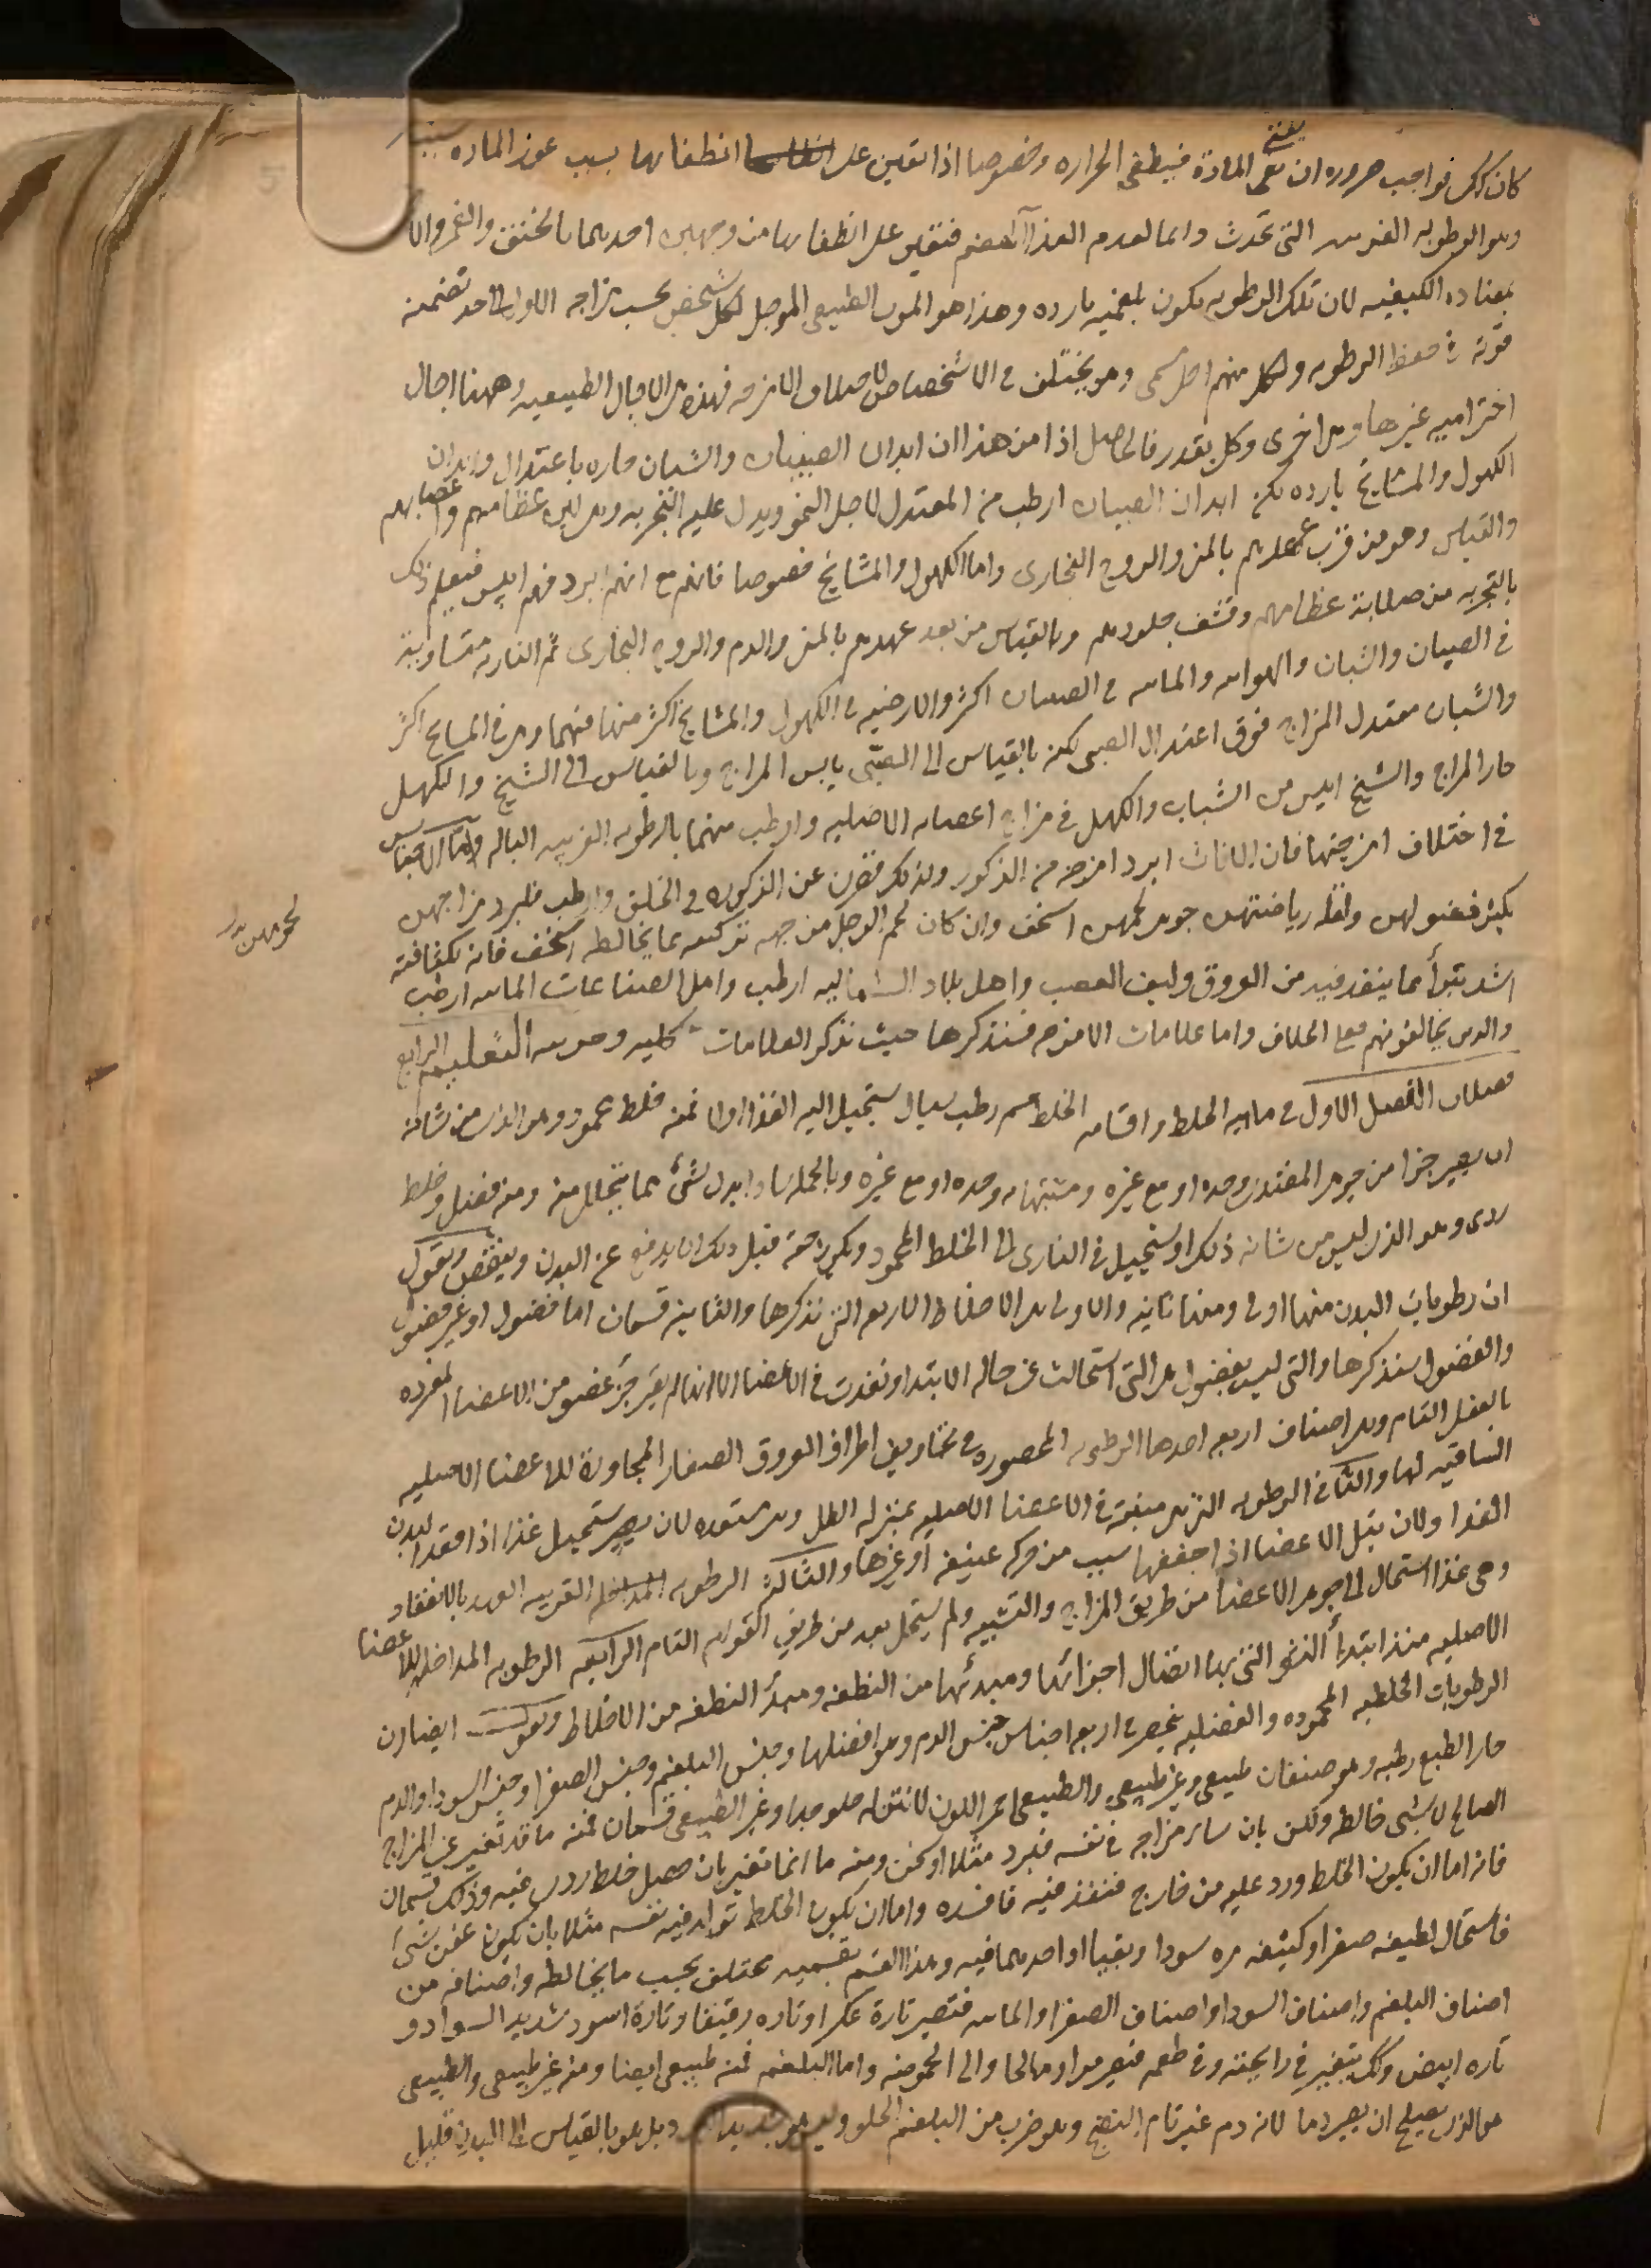 كان كذلك فواجب ضروره ان يفنى المادة فينطفى الحراره وخصوصا اذا يعين على انطفايها بسبب عوز الماده سبب
وهو الرطوبه الغريبه التى تحدث دايما لعدم الغذا الهضم فتعين على انطفايها من وجهين احديهما بالخنق والغمر والا
بمضاده الكيفيه لان تلك الرطوبه تكون بلغميه بارده وهذا هو الموت الطبيعى الموجل لكل شخص بحسب مزاجه الاول الى حد تضمنه
قوته فى حفظ الرطوبه ولكل منهم اجل مسمى وهو يختلف فى الاشخاص لاختلاف الامزجه فهذه هى الاجال الطبيعيه وههنا اجال
اخترامیه غيرها وهى اخرى وكل بقدر فالحاصل اذا من هذا ان ابدان الصبيان والشبان حاره باعتدال وابدان
الكهول والمشايخ بارده لكن ابدان الصبيان ارطب من المعتدل لاجل النمو ويدل عليه التجربه وهى لين عظامهم واعصابهم
والقياس وهو من قرب عهدهم بالمنى والروح البخارى واما الكهول والمشايخ خصوصا فانهم مع انهم ابرد فهم ايبس فيعلم ذلك
بالتجربه من صلابة عظامهم وقشف جلودهم وبالقياس من بعد عهدهم بالمنى والدم والروح البخارى ثم الناريه متساوية
فى الصبيان والشبان والهوايه والمايه فى الصبيان اكثر والارضيه فى الكهول والمشايخ اكثر منها فيهما وهى فى المشايخ اكثر
والشبان معتدل المزاج فوق اعتدال الصبى لكنه بالقياس الى الصبى يابس المزاج وبالقياس الى الشيخ والكهل
حار المزاج والشيخ ايبس من الشباب والكهل فى مزاج اعضايه الاصليه وارطب منهما بالرطوبه الغريبه الباله واما الاجناس
فى اختلاف امزجتها فان الاناث ابرد امزجه من الذكور ولذلك قصرن عن الذكوره فى الخلق وارطب فلبرد مزاجهن
يكثر فضولهن ولقله رياضتهن جوهر لحمهن اسخف وان كان لحم الرجل من جهه تركيبه بما يخالطه اسخف فانه لكثافته
اشد تبرأ مما ينفذ فيه من العروق وليف العصب واهل بلاد الشماليه ارطب واهل الصناعات المايه ارطب
والذين يخالفونهم فعلى الخلاف واما علامات الامزجه فسنذكرها حيث نذكر العلامات كليه وجزييه التعليم الرابع
فصلان الفصل الاول فى ماهيه الخلط واقسامه الخلط جسم رطب سيال يستحيل اليه الغذا اولا فمنه خلط محمود وهو الذى من شانه
ان يصير جزا من جوهر المغتذى وحده او مع غيره ومتشبها به وحده او مع غيره وبالجمله سادا بدل شىء مما يتحلل منه ومنه فضل وخلط
ردى وهو الذى ليس من شانه ذلك او يستحيل فى النادر الى الخلط المحمود ويكون حقه قبل ذلك ان يدفع عن البدن وينفض ونقول
ان رطوبات البدن منها اولى ومنها ثانيه والاولى هى الاخلاط الاربعه التى نذكرها والثانية قسمان اما فضول او غير فضول
والفضول سنذكرها والتى ليست بفضول هى التى استحالت عن حاله الابتدا ونفذت فى الاعضا الا انها لم يصر جزء عضو من الاعضا المفرده
بالفعل التام وهى اصناف اربعه احدها الرطوبه المحصوره فى تجاويف اطراف العروق الصغار المجاورة للاعضا الاصليه
الساقيه لها والثانى الرطوبه التى هى منبثة فى الاعضا الاصليه بمنزله الطل وهى مستعده لان يستحيل غذا اذا فقد البدن
الغدا ولان تبل الاعضا اذا جففها سبب من حركه عنيفه او غيرها والثالث الرطوبه القريبه العهد بالانعقاد
وهى غذا استحال الى جوهر الاعضا من طريق المزاج والتشبيه ولم يستحل بعد من طريق القوام التام الرابعه الرطوبه المداخله للاعضا
الاصليه منذ ابتدأ النشو التى بها اتصال اجزائها ومبدئها من النطفه ومبدأ النطفه من الاخلاط ونقول ايضا ان
الرطوبات الخلطيه المحموده والفضليه ينحصر فى اربعه اجناس جنس الدم وهو افضلها وجنس البلغم وجنس الصفرا وجنس السودا والدم
حار الطبع رطبه وهو صنفان طبيعى وغير طبيعى والطبيعى احمر اللون لا نتن له حلو جدا وغير الطبيعى قسمان فمنه ما قد تغير عن المزاج
الصالح لا بشى خالطه ولكن بان ساء مزاجه فى نفسه فبرد مثلا او سخن ومنه ما انما تغير بان حصل خلط ردى فيه وذلك قسمان
فانه اما ان يكون الخلط ورد عليه من خارج فنفذ فيه فافسده واما ان يكون الخلط تولد فيه نفسه مثلا بان يكون عفن شىء
فاستحال لطيفه صفرا وكثيفه مره سودا وبقيا او احدهما فيه وهذا القسم بقسميه مختلف بحسب ما يخالطه واصنافه من
اصناف البلغم واصناف السودا واصناف الصفرا والمايه فتصير تارة عكرا وتاره رقيقا وتارة اسود شديد السواد و
تاره ابيض وكذلك يتغير فى رايحته وفى طعمه فيصير مرا ومالحا والى الحموضه واما البلغم فمنه طبيعى ايضا ومنه غير طبيعى والطبيعى
هو الذى يصلح ان يصير دما لانه دم غير تام النضج وهو ضرب من البلغم الحلو وليس هو بشديد البرد بل هو بالقياس الى البدن قليل